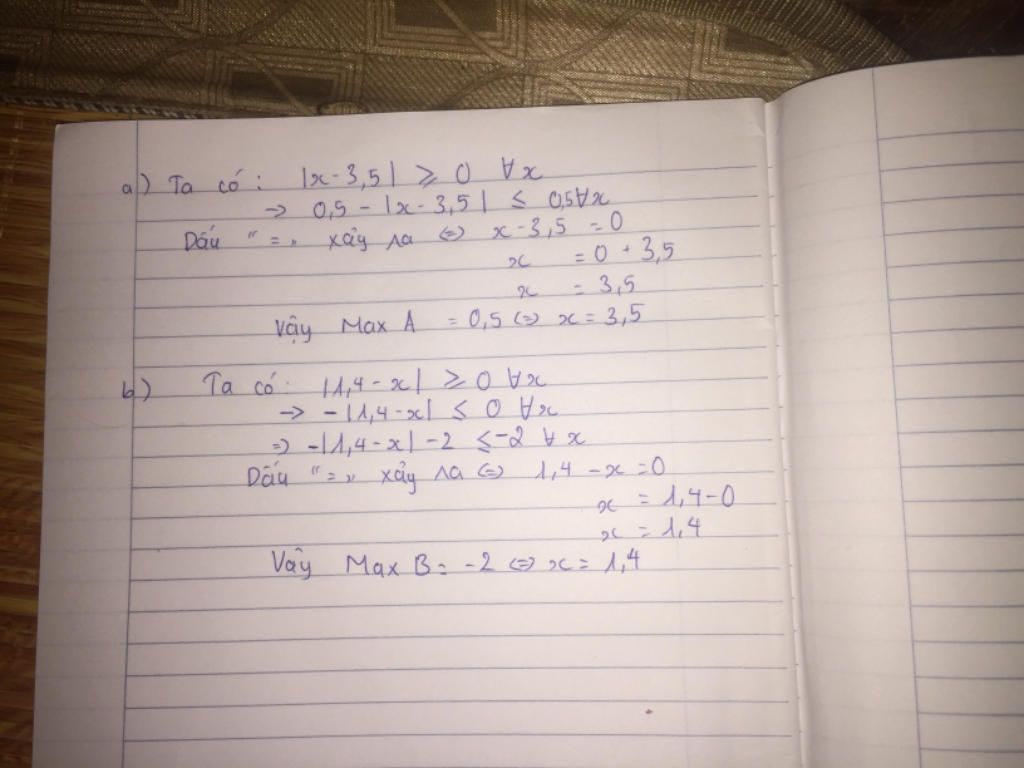 a) Ta có: |x - 3,5| ⩾ 0 ∀x
→ 0,5 - |x - 3,5| ≤ 0,5∀x
Dấu "=" xảy ra ⇔ x - 3,5 = 0
x = 0 + 3,5
x = 3,5
Vậy Max A = 0,5 ⇔ x = 3,5
b) Ta có: |1,4 - x| ⩾ 0 ∀x
→ -|1,4 - x| ≤ 0 ∀x
⇒ -|1,4 - x| - 2 ≤ -2 ∀x
Dấu "=" xảy ra ⇔ 1,4 - x = 0
x = 1,4 - 0
x = 1,4
Vậy Max B = -2 ⇔ x = 1,4